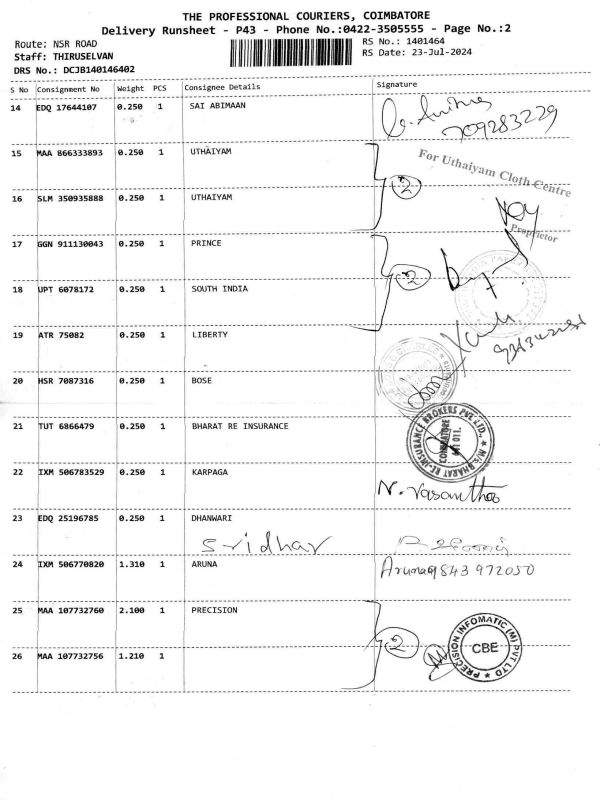 THE PROFESSIONAL COURIERS, COIMBATORE
Delivery Runsheet - P43 - Phone No.:0422-3505555 - Page No.:2
Route: NSR ROAD
RS No.: 1401464
Staff: THIRUSELVAN
RS Date: 23-Jul-2024
DRS No.: DCJB140146402
S No Consignment No Weight PCS Consignee Details Signature
14 EDQ 17644107 0.250 1 SAI ABIMAAN
709283229
15 MAA 866333893 0.250 1 UTHAIYAM
For Uthaiyam Cloth Centre
2
16 SLM 350935888 0.250 1 UTHAIYAM
Proprietor
17 GGN 911130043 0.250 1 PRINCE
2
18 UPT 6078172 0.250 1 SOUTH INDIA
19 ATR 75082 0.250 1 LIBERTY
20 HSR 7087316 0.250 1 BOSE
21 TUT 6866479 0.250 1 BHARAT RE INSURANCE
M/s.BHARAT RE-INSURANCE BROKERS PVT LTD.,
COIMBATORE
641 011.
22 IXM 506783529 0.250 1 KARPAGA
N. Vasantha
23 EDQ 25196785 0.250 1 DHANWARI
Sridhar
24 IXM 506770820 1.310 1 ARUNA
Aruna 9843 972050
25 MAA 107732760 2.100 1 PRECISION
2
PRECISION INFOMATIC (M) PVT LTD
CBE
26 MAA 107732756 1.210 1